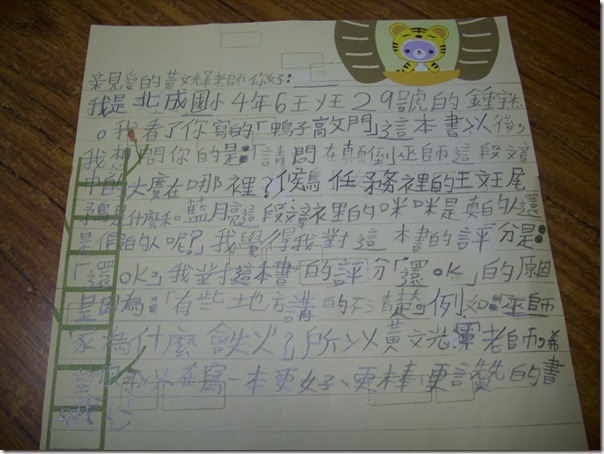 亲見愛的黃文輝老師你好:
我是北成國小4年6王㸚王29號的鍾
。我看了你寫的「鴨子敲門」這本書以後,
我想問你的是:「請問在顛倒巫師這段文章
中的火災在哪裡?候鳥任務裡的王玟尾
是什麼和藍月亮這段裡的咪咪是真的人還
是假的人呢?」我覺得我對這本書的評分是:
「還OK。」我對這本書的評分「還OK」的原因
是因為:「有些地方講的不清楚。例如:巫師
家為什麼會失火?所以黃文輝老師,希
望你可以在寫一本更好、更棒、更讚的書